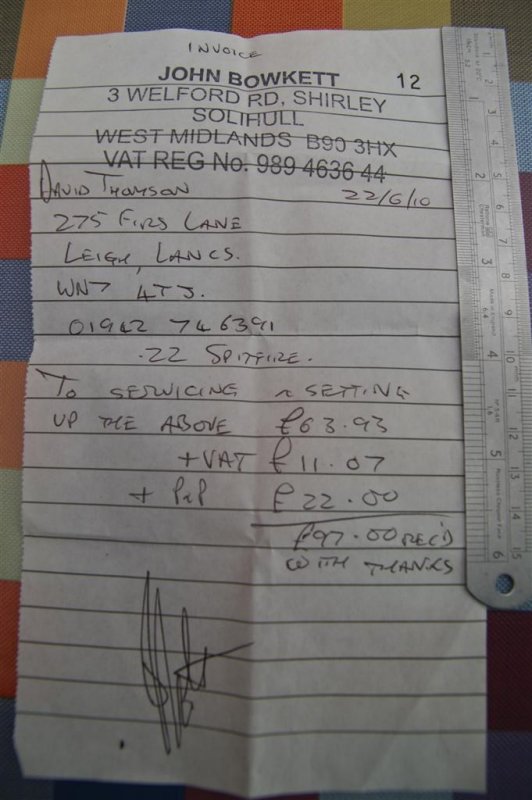 INVOICE
JOHN BOWKETT 12
3 WELFORD RD, SHIRLEY
SOLIHULL
WEST MIDLANDS B90 3HX
VAT REG No. 989 4636 44
DAVID THOMSON 22/6/10
275 FIRS LANE
LEIGH, LANCS.
WN7 4TJ.
01942 746391
.22 SPITFIRE.
TO SERVICING & SETTING
UP THE ABOVE £63.93
+VAT £11.07
+ P&P £22.00
£97.00 REC'D
WITH THANKS